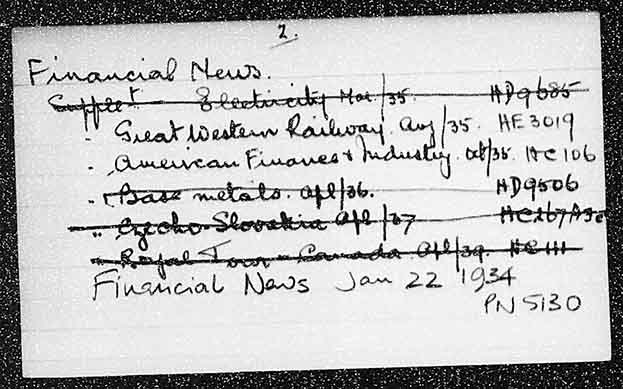 2.
Financial News.
Supplet Electricity Mar/35. HD9685
" Great Western Railway. Aug/35. HE3019
" American Finance & Industry. Oct/35. HC106
" Base metals. Apl/36. HD9506
" Czecho-Slovakia Apl/37 HC267A3
" Royal Tour - Canada Apl/39. HC111
Financial News Jan 22 1934
PN5130